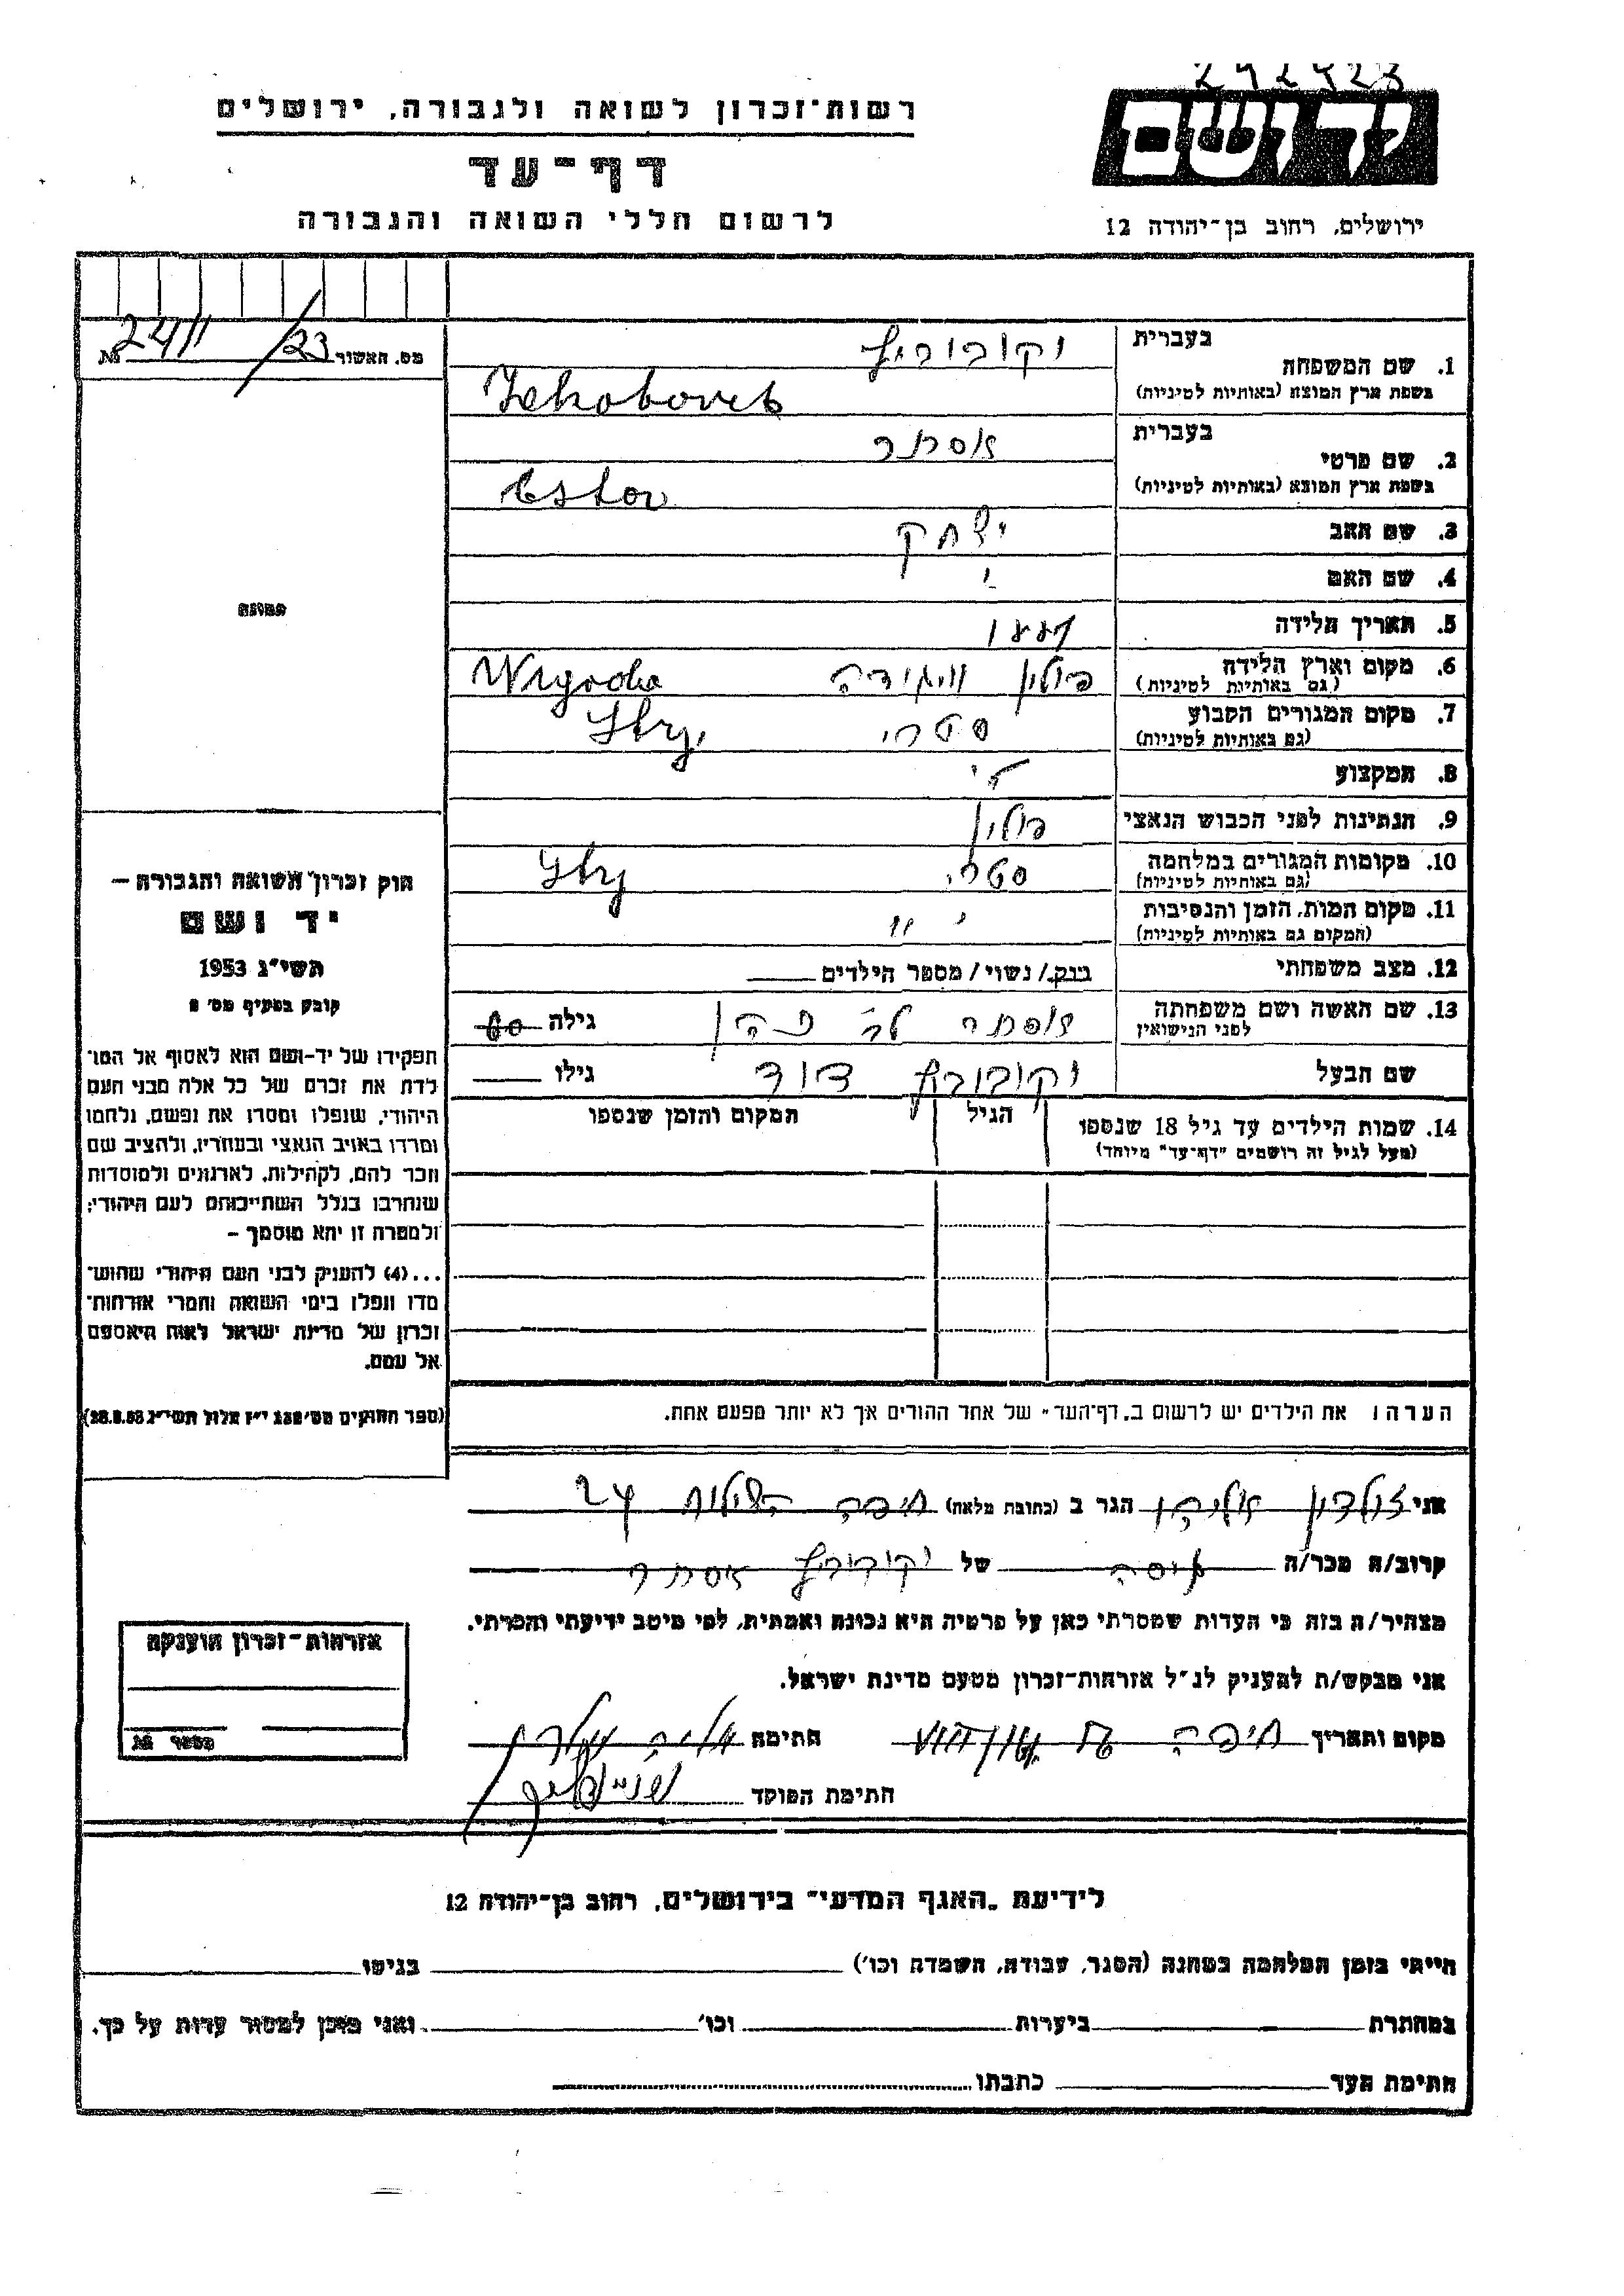 רשות־זכרון לשואה ולגבורה, ירושלים
דף־עד
לרשום חללי השואה והגבורה
יד ושם
ירושלים, רחוב בן־יהודה 12
מס. האשור 23/2411 №
בעברית
1. שם המשפחה
בשפת ארץ המוצא (באותיות לטיניות)
יקובוביץ
בעברית
2. שם פרטי
בשפת ארץ המוצא (באותיות לטיניות)
אסתר
Ester
3. שם האב יצחק
4. שם האם
5. תאריך הלידה
6. מקום וארץ הלידה פולין
(גם באותיות לטיניות)
7. מקום המגורים הקבוע סטרי Stry
(גם באותיות לטיניות)
8. המקצוע
9. הנתינות לפני הכבוש הנאצי פולין
10. מקומות המגורים במלחמה סטרי Stry
(גם באותיות לטיניות)
11. מקום המות, הזמן והנסיבות
(המקום גם באותיות לטיניות)
12. מצב משפחתי רווק/נשוי/מספר הילדים
13. שם האשה ושם משפחתה אסתר גילה 60
לפני הנישואין
שם הבעל יקובוביץ דוד גילו
14. שמות הילדים עד גיל 18 שנספו הגיל המקום והזמן שנספו
(מעל לגיל זה רושמים "דף־עד" מיוחד)
הערה: את הילדים יש לרשום ב„דף־העד" של אחד ההורים אך לא יותר מפעם אחת.
תמונה
חוק זכרון השואה והגבורה –
יד ושם
תשי"ג 1953
קובע בסעיף מס' 2
תפקידו של יד־ושם הוא לאסוף אל המו־
לדת את זכרם של כל אלה מבני העם
היהודי, שנפלו ומסרו את נפשם, נלחמו
ומרדו באויב הנאצי ובעוזריו, ולהציב שם
וזכר להם, לקהילות, לארגונים ולמוסדות
שנחרבו בגלל השתייכותם לעם היהודי;
ולמטרה זו יהא מוסמך –
...(4) להעניק לבני העם היהודי שהוש־
מדו ונפלו בימי השואה והמרי אזרחות־
זכרון של מדינת ישראל לאות היאספם
אל עמם.
(ספר החוקים מס' 132 י"ז אלול תשי"ג 28.8.53)
אני הגר ב (כתובת מלאה) חיפה 24
קרוב/ה מכר/ה של יקובוביץ אסתר
מצהיר/ה בזה כי העדות שמסרתי כאן על פרטיה היא נכונה ואמתית, לפי מיטב ידיעתי והכרתי.
אני מבקש/ת להעניק לנ"ל אזרחות־זכרון מטעם מדינת ישראל.
מקום ותאריך חיפה חתימה
חתימת הפוקד
אזרחות־זכרון הוענקה
מספר №
לידיעת „האגף המדעי" בירושלים, רחוב בן־יהודה 12
הייתי בזמן המלחמה במחנה (הסגר, עבודה, השמדה וכו') בגיטו
במחתרת ביערות וכו' ואני מוכן למסור עדות על כך.
חתימת העד כתבתו